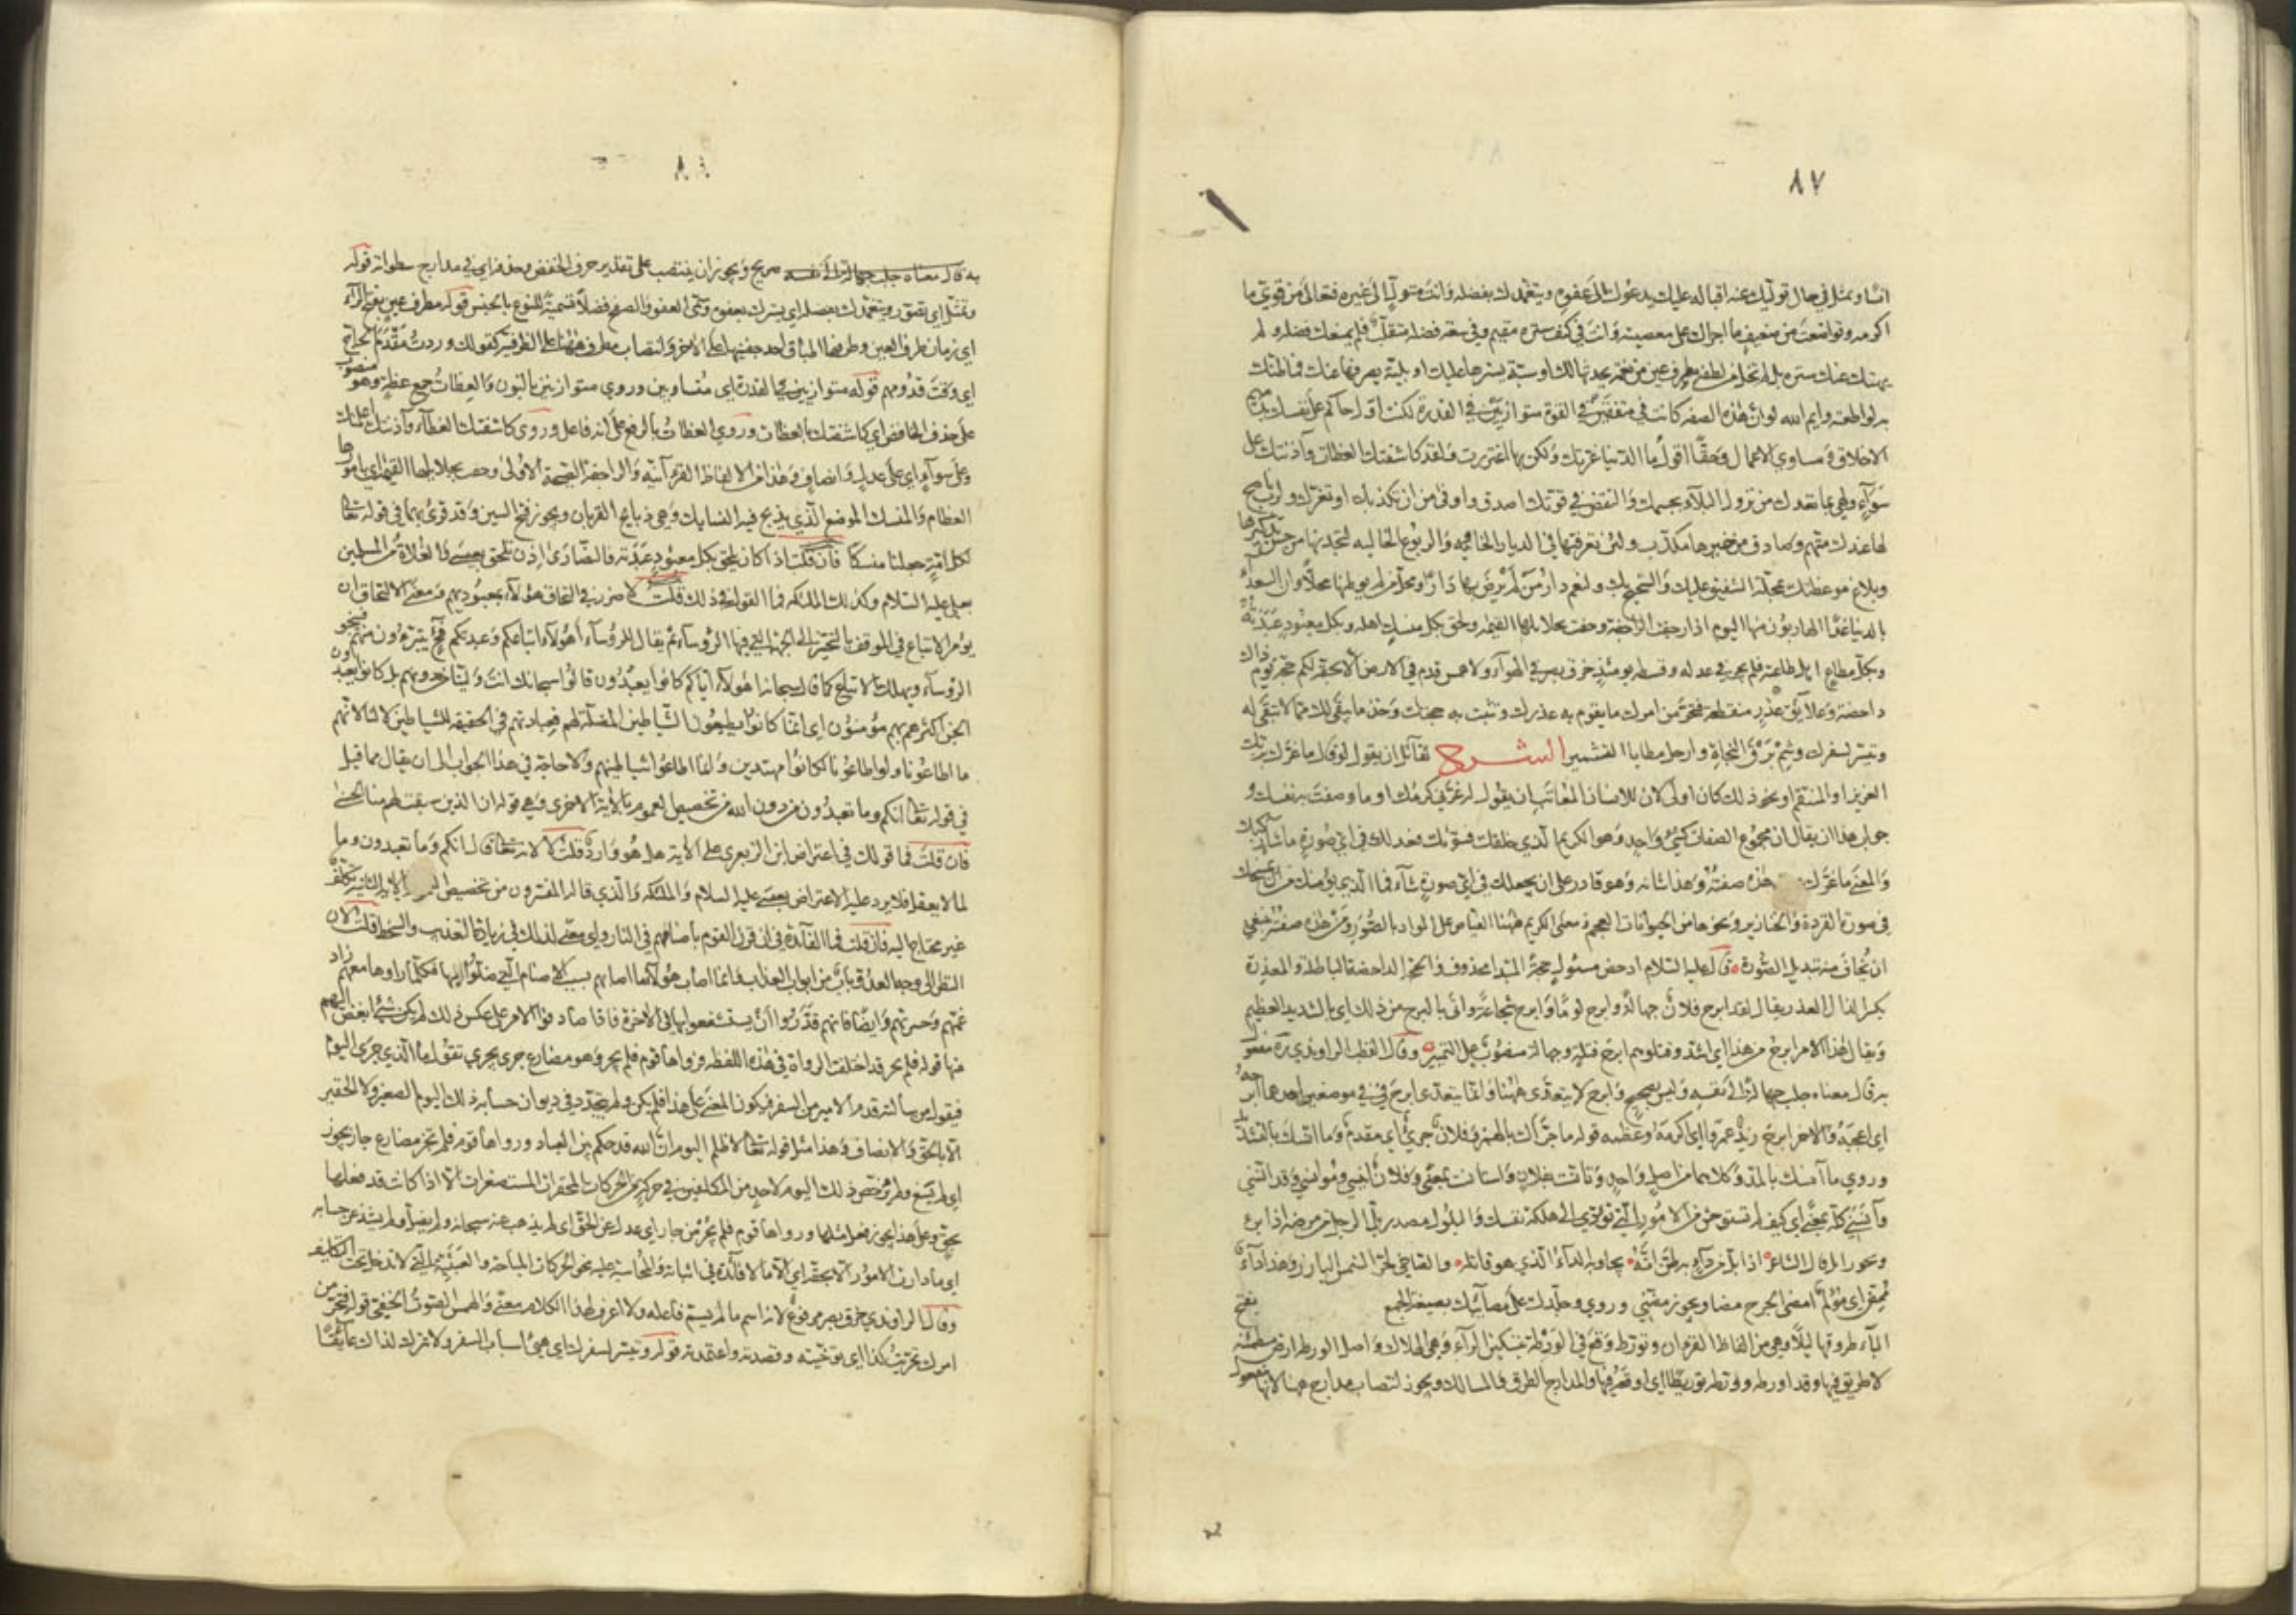 ٨٧
انسا وتمثل في حال توليك عنه اقباله عليك يدعوك الى عفوه ويتغمدك بفضله وانت متول عنه الى غيره فتعالى من قوي ما
اكرمه وتواضعت من ضعيف ما اجراك على معصيته وانت في كنف ستره مقيم وفي سعة فضله متقلب فلم يمنعك فضله ولم
يهتك عنك ستره بل لم تخل من لطفه مطرف عين من نعمة يحدثها لك او سيئة يسترها عليك او بلية يصرفها عنك فما ظنك
به لو اطعته وايم الله لو ان هذه الصفه كانت في متفقين في القوة متوازيين في القدرة لكنت اول حاكم على نفسك بذميم
الاخلاق ومساوي الاعمال وحقا اقول ما الدنيا غرتك ولكن بها اغتررت ولقد كاشفتك العظات وآذنتك على
سواء ولهي بما تعدك من نزول البلاء بجسمك والنقص في قوتك اصدق واوفى من ان تكذبك او تغرك ولرب ناصح
لها عندك متهم وصادق من خبرها مكذب ولئن تعرفتها في الديار الخاوية والربوع الخاليه لتجدنها من حسن تذكيرها
وبلاغ موعظتك بمحلة الشفيق عليك والشحيح بك ولنعم دار من لم يرض بها دارا ومحل من لم يوطنها محلا وان السعداء
بالدنيا غدا هم الهاربون منها اليوم اذا رجفت الراجفة وحقت بجلائلها القيمه ولحق بكل منسك اهله وبكل معبود عبدته
وبكل مطاع اهل طاعته فلم يجز في عدله وقسطه يومئذ خرق بصر في الهواء ولا همس قدم في الارض الا بحقه فكم حجة يوم ذاك
داحضة وعلائق عذر منقطعة فتحر من امرك ما يقوم به عذرك وتثبت به حجتك وخذ ما يبقى لك مما لا تبقى له
وتيسر لسفرك وشم برق النجاة وارحل مطايا التشمير الشرح لقائل ان يقول لو قال ما غرك بربك
العزيز او المنتقم او نحو ذلك كان اولى لان للانسان المعاتب ان يقول له غرني كرمك او ما وصفت به نفسك و
جواب هذا ان يقال ان مجموع الصفات كشئ واحد وهو الكريم الذي خلقك فسواك فعدلك في اي صورة ما شاء ركبك
والمعنى ما غرك هذه صفته وهذا شانه وهو قادر على ان يجعلك في اي صورة شاء فما الذي يؤمنك من ان يمسخك
في صورة القردة والخنازير ونحوها من الحيوانات العجم ومعنى الكريم ههنا الفياض على المواد بالصور ومن هذه صفته ينبغي
ان يخاف منه تبديل الصورة قال عليه السلام ادحض مسئول حجة المبتدا محذوف والحجة الداحضة الباطلة والمعذرة
بكسر الذال العذر يقال لقد ابرح فلان جهالة وابرح لوما وابرح شجاعة واتى بالبرح من ذلك اي بالشديد العظيم
ويقال هذا الامر ابرح من هذا اي اشد وقتلوهم ابرح قتل وجهالة منصوب على التمييز وقال القطب الراوندي مفعول
به قال معناه جلب جهالة الى نفسه وليس بصحيح وابرح لا يتعدى ههنا وانما يتعدى ابرح في موضعين احدهما ابرحه
اي اعجبه والاخر ابرح زيد عمرا اي اكرمه وعظمه قوله ما جرأك بالهمزة وفلان جرئ اي مقدم وما انسك بالتشديد
وروي ما آنسك بالمد وكلاهما من اصل واحد وتانست بفلان واستانست بمعنى وفلان انيسي ومؤانسي وقد انسني
وآنسني كله بمعنى اي كيف لم تستوحش من الامور التي تؤدي الى هلكة نفسك والبلول مصدر بل الرجل من مرضه اذا برئ
اذا بل من داء به ظن انه نجا وبه الداء الذي هو قاتله والضاحي لحر الشمس البارز وهذا داء
ممض اي مؤلم امضني الجرح امضاضا ويجوز مضني وروي وجلدك على مصائبك بصيغة الجمع
وتورط وقع في الورطة بتسكين الراء وهي الهلاك واصل الورطة ارض مطمئنة
لا طريق فيها وقد اورطه وورطه توريطا اي اوقعه فيها والمدارج الطرق والمسالك ويجوز انتصاب مدارج هنا لانها مفعول
به قال معناه جلب جهالة الى نفسه صريح ويجوز ان ينتصب على تقدير حرف الخفض وحذفه اي في مدارج سطواته قوله
وتمثل اي تصور ويتغمدك بفضله اي يسترك بعفوه وسمى العفو والصفح فضلا تسمية للنوع بالجنس قوله مطرف عين بفتح الراء
اي زمان طرف العين وطرفها اطباق احد جفنيها على الاخر وانتصاب مطرف ههنا على الظرفية كقولك وردت مقدم الحاج
اي وقت قدومهم قوله متوازيين في القدرة اي متساويين وروي متوازنين بالنون والعظات جمع عظة وهو منصوب
على حذف الخافض اي كاشفتك بالعظات وروي العظات بالرفع على انه فاعل وروى كاشفتك الغطاء وآذنتك اعلمتك
وعلى سواء اي على عدل وانصاف وهذا من الالفاظ القرآنيه والراجفة الصيحة الاولى وحقت بجلائلها القيمه اي بامورها
العظام والمنسك الموضع الذي يذبح فيه النسايك وهي ذبايح القربان ويجوز فتح السين وقد قرئ بهما في قوله تعالى
لكل امة جعلنا منسكا فان قلت اذا كان يلحق بكل معبود عبدته فالنصارى اذن تلحق بعيسى والغلاة من المسلمين
بعلي عليه السلام وكذلك الملائكه فما القول في ذلك قلت لا ضرر في التحاق هؤلاء بمعبوديهم ومعنى الالتحاق ان
يؤمر الاتباع في الموقف بالتحيز الى الجهة التي فيها الرؤساء ثم يقال للرؤساء اهؤلاء اتباعكم وعبدتكم فح يتبرؤن منهم فينجو
الرؤساء ويهلك الاتباع كما قال سبحانه اهؤلاء اياكم كانوا يعبدون قالوا سبحانك انت ولينا من دونهم بل كانوا يعبدون
الجن اكثرهم بهم مؤمنون اي انما كانوا يطيعون الشياطين المضلة لهم فعبادتهم في الحقيقه للشياطين لا لنا لانهم
ما اطاعونا ولو اطاعونا لكانوا مهتدين وانما اطاعوا شياطينهم ولا حاجة في هذا الجواب الى ان يقال ما قيل
في قوله تعالى انكم وما تعبدون من دون الله من تخصيص العموم بالاية الاخرى وهي قوله ان الذين سبقت لهم منا الحسنى
فان قلت فما قولك في اعتراض ابن الزبعرى على الاية هل هو وارد قلت لا لانه تعالى قال انكم وما تعبدون وما
لما لا يعقل فلا يرد عليه الاعتراض بعيسى عليه السلام والملائكه والذي قاله المفسرون من تخصيص بالاية الثانية تكلف
غير محتاج اليه فان قلت فما الفائدة في ان قرن القوم باصنامهم في النار واي معنى لذلك في زيادة التعذيب والسخط قلت لان
النظر الى وجه العدو باب من ابواب العذاب وانما اصاب هؤلاء ما اصابهم بسبب الاصنام التي ضلوا بها فكلما راوها معهم زاد
غمهم وحسرتهم وايضا فانهم قدروا ان يستشفعوا بها في الاخرة فاذا صادفوا الامر على عكس ذلك لم يكن شئ ابغض اليهم
منها قوله فلم يجر قد اختلفت الرواة في هذه اللفظه فرواها قوم فلم يجر وهو مضارع جرى يجري تقول ما الذي جرى اليوم
فيقول من سالته قدم الامير من السفر فيكون المعنى على هذا فلم يكن ولم يتجدد في ديوان حسابه ذلك اليوم الصغير ولا الحقير
الا بالحق والانصاف وهذا مثل قوله تعالى لا ظلم اليوم ان الله قد حكم بين العباد ورواها قوم فلم يجز مضارع جاز يجوز
اي لم يسغ ولم يرخص ذلك اليوم لاحد من المكلفين في حركة من الحركات المحقرات المستصغرات الا اذا كانت قد فعلها
بحق وعلى هذا يجوز فعل مثلها ورواها قوم فلم يجر من جار اي عدل عن الحق اي لم يذهب عنه سبحانه ولم يضل ولم يشذ عن حسابه
اي ما دار في الامور الا بحقه اي الا ما لا فائدة في اثباته والمحاسبة عليه نحو الحركات المباحة والعبثية التي لا تدخل تحت التكليف
وقال الراوندي خرق بصر مرفوع لانه اسم ما لم يسم فاعله ولا اعرف لهذا الكلام معنى والهمس الصوت الخفي قوله فتحر من
امرك تحريت كذا اي توخيته وقصدته واعتمدته قوله وتيسر لسفرك اي هيئ اسباب السفر ولا تترك لذلك عائقا